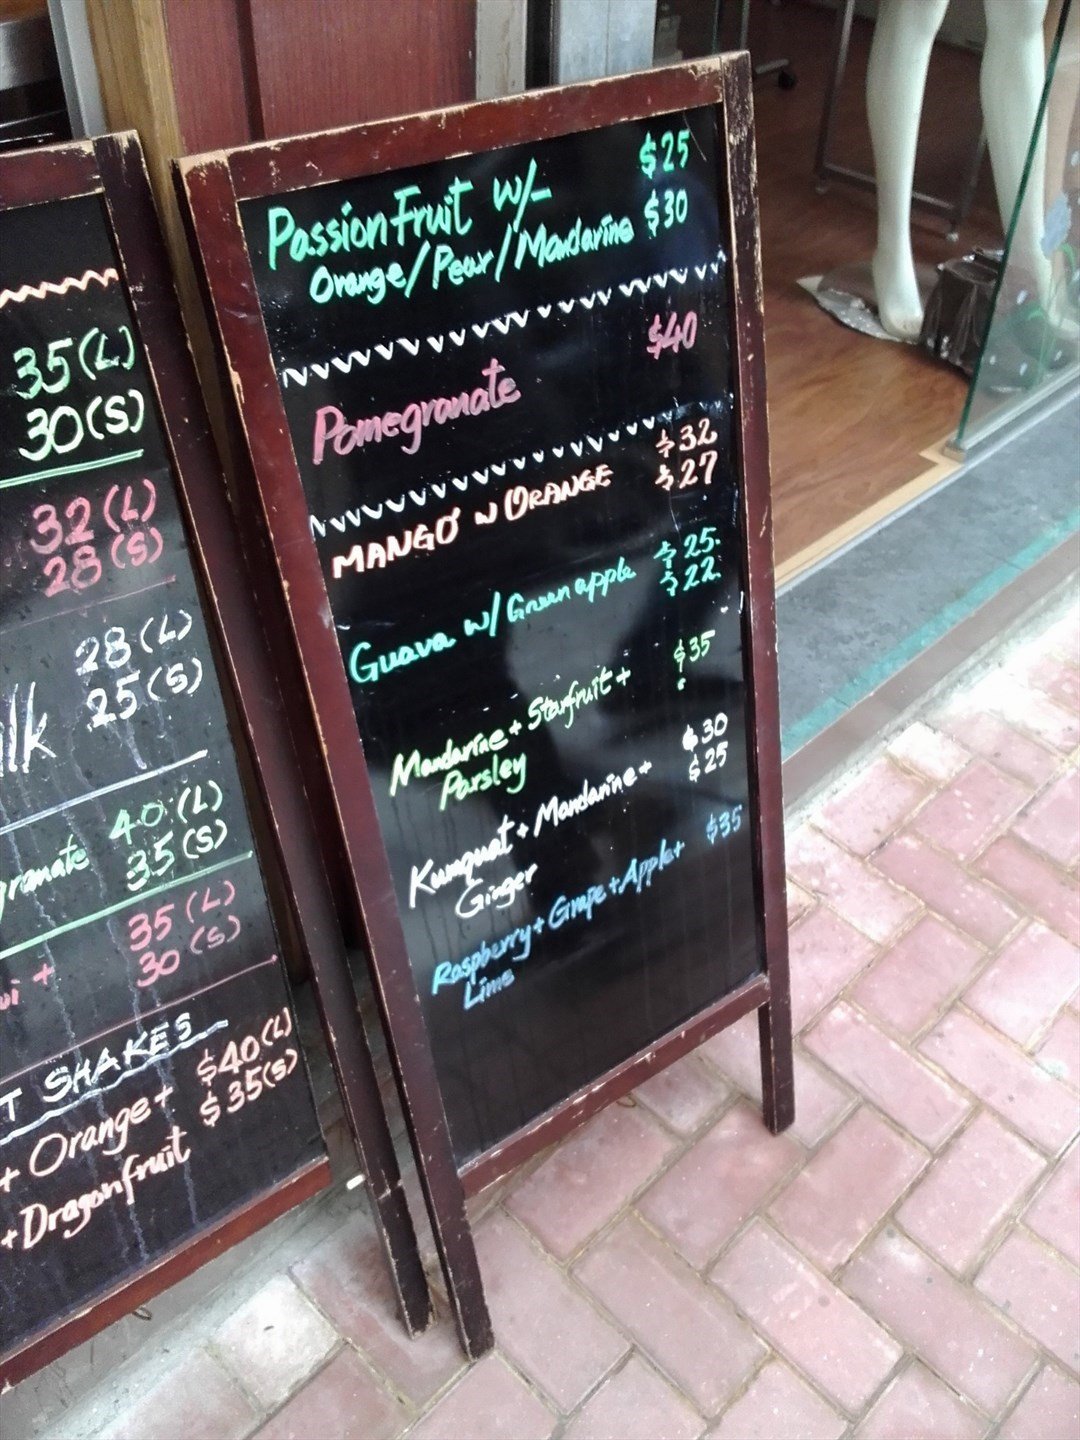 35(L)
30(S)
32(L)
28(S)
28(L)
25(S)
40(L)
35(S)
35(L)
+ 30(S)
SHAKES
+ Orange + $40(L)
$35(S)
+ Dragonfruit
Passion Fruit w/- $25
Orange/Pear/Mandarine $30
Pomegranate $40
MANGO w ORANGE $32
$27
Guava w/ Green apple $25.
$22
Mandarine + Starfruit + $35
Parsley
Kumquat + Mandarine + $30
Ginger $25
Raspberry + Grape + Apple + $35
Lime